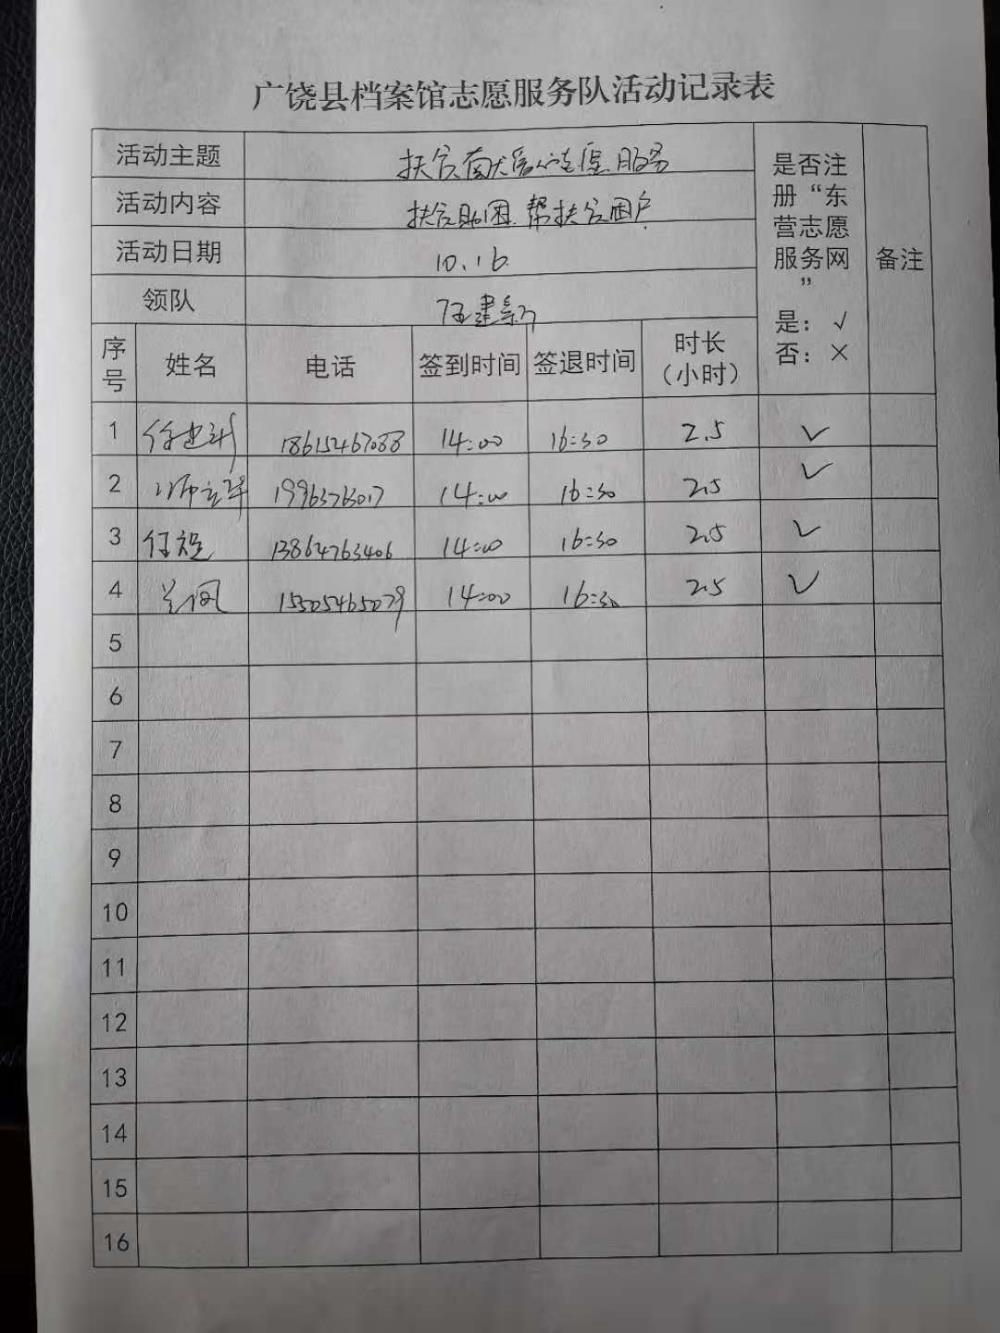 广饶县档案馆志愿服务队活动记录表
活动主题 扶贫献爱心志愿服务
活动内容 扶贫助困 帮扶贫困户
活动日期 10.16
领队 任建新
是否注册“东营志愿服务网”
是：√
否：×
备注
序号 姓名 电话 签到时间 签退时间 时长（小时）
1 任建新 18615467088 14:00 16:30 2.5 ✓
2 14:00 16:30 2.5 ✓
3 13864763406 14:00 16:30 2.5 ✓
4 兰凤 15505465079 14:00 16:30 2.5 ✓
5
6
7
8
9
10
11
12
13
14
15
16